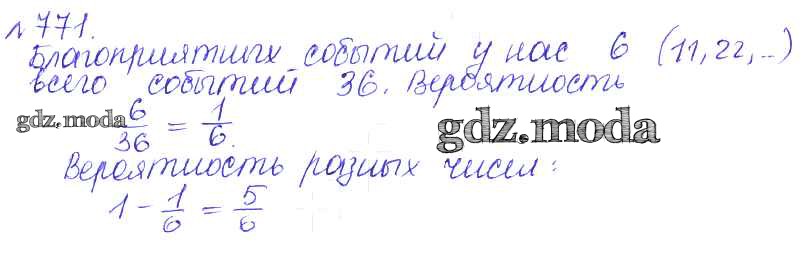 №771.
Благоприятных событий у нас 6 (11, 22, ...)
всего событий 36. Вероятность
6/36 = 1/6.
gdz.moda
gdz.moda
Вероятность разных чисел:
1 - 1/6 = 5/6